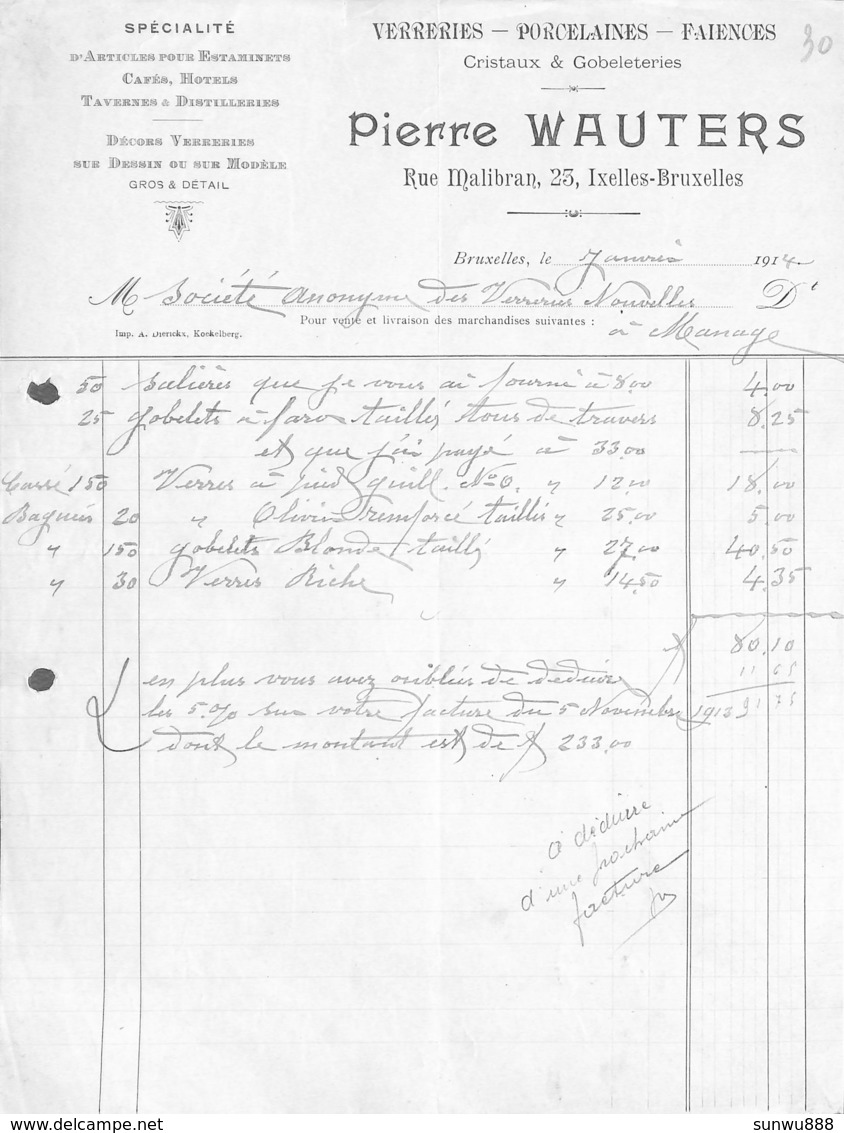 SPÉCIALITÉ
D'ARTICLES POUR ESTAMINETS
CAFÉS, HOTELS
TAVERNES & DISTILLERIES
DÉCORS VERRERIES
SUR DESSIN OU SUR MODÈLE
GROS & DÉTAIL
VERRERIES — PORCELAINES — FAIENCES
30
Cristaux & Gobeleteries
Pierre WAUTERS
Rue Malibran, 23, Ixelles-Bruxelles
Bruxelles, le Janvier 1914
M Société Anonyme des Verreries Nouvelles Dt
Pour vente et livraison des marchandises suivantes :
à Manage
Imp. A. Dierickx, Koekelberg.
50 salières que je vous ai fourni à 8.00 4.00
25 gobelets à faro taillés tous de travers 8.25
et que j'ai payé à 33.00
Cassé 150 Verres à pied guill. No 0. " 12.00 18.00
20 " Olivin renforcé taillés " 25.00 5.00
" 150 gobelets Blonde taillés " 27.00 40.50
" 30 Verres Riche " 14.50 4.35
80.10
en plus vous avez oubliés de deduire 11 65
les 5% sur votre facture du 5 Novembre 1913 91 75
dont le montant est de f 233.00
à déduire
d'une prochaine
facture
sunwu888